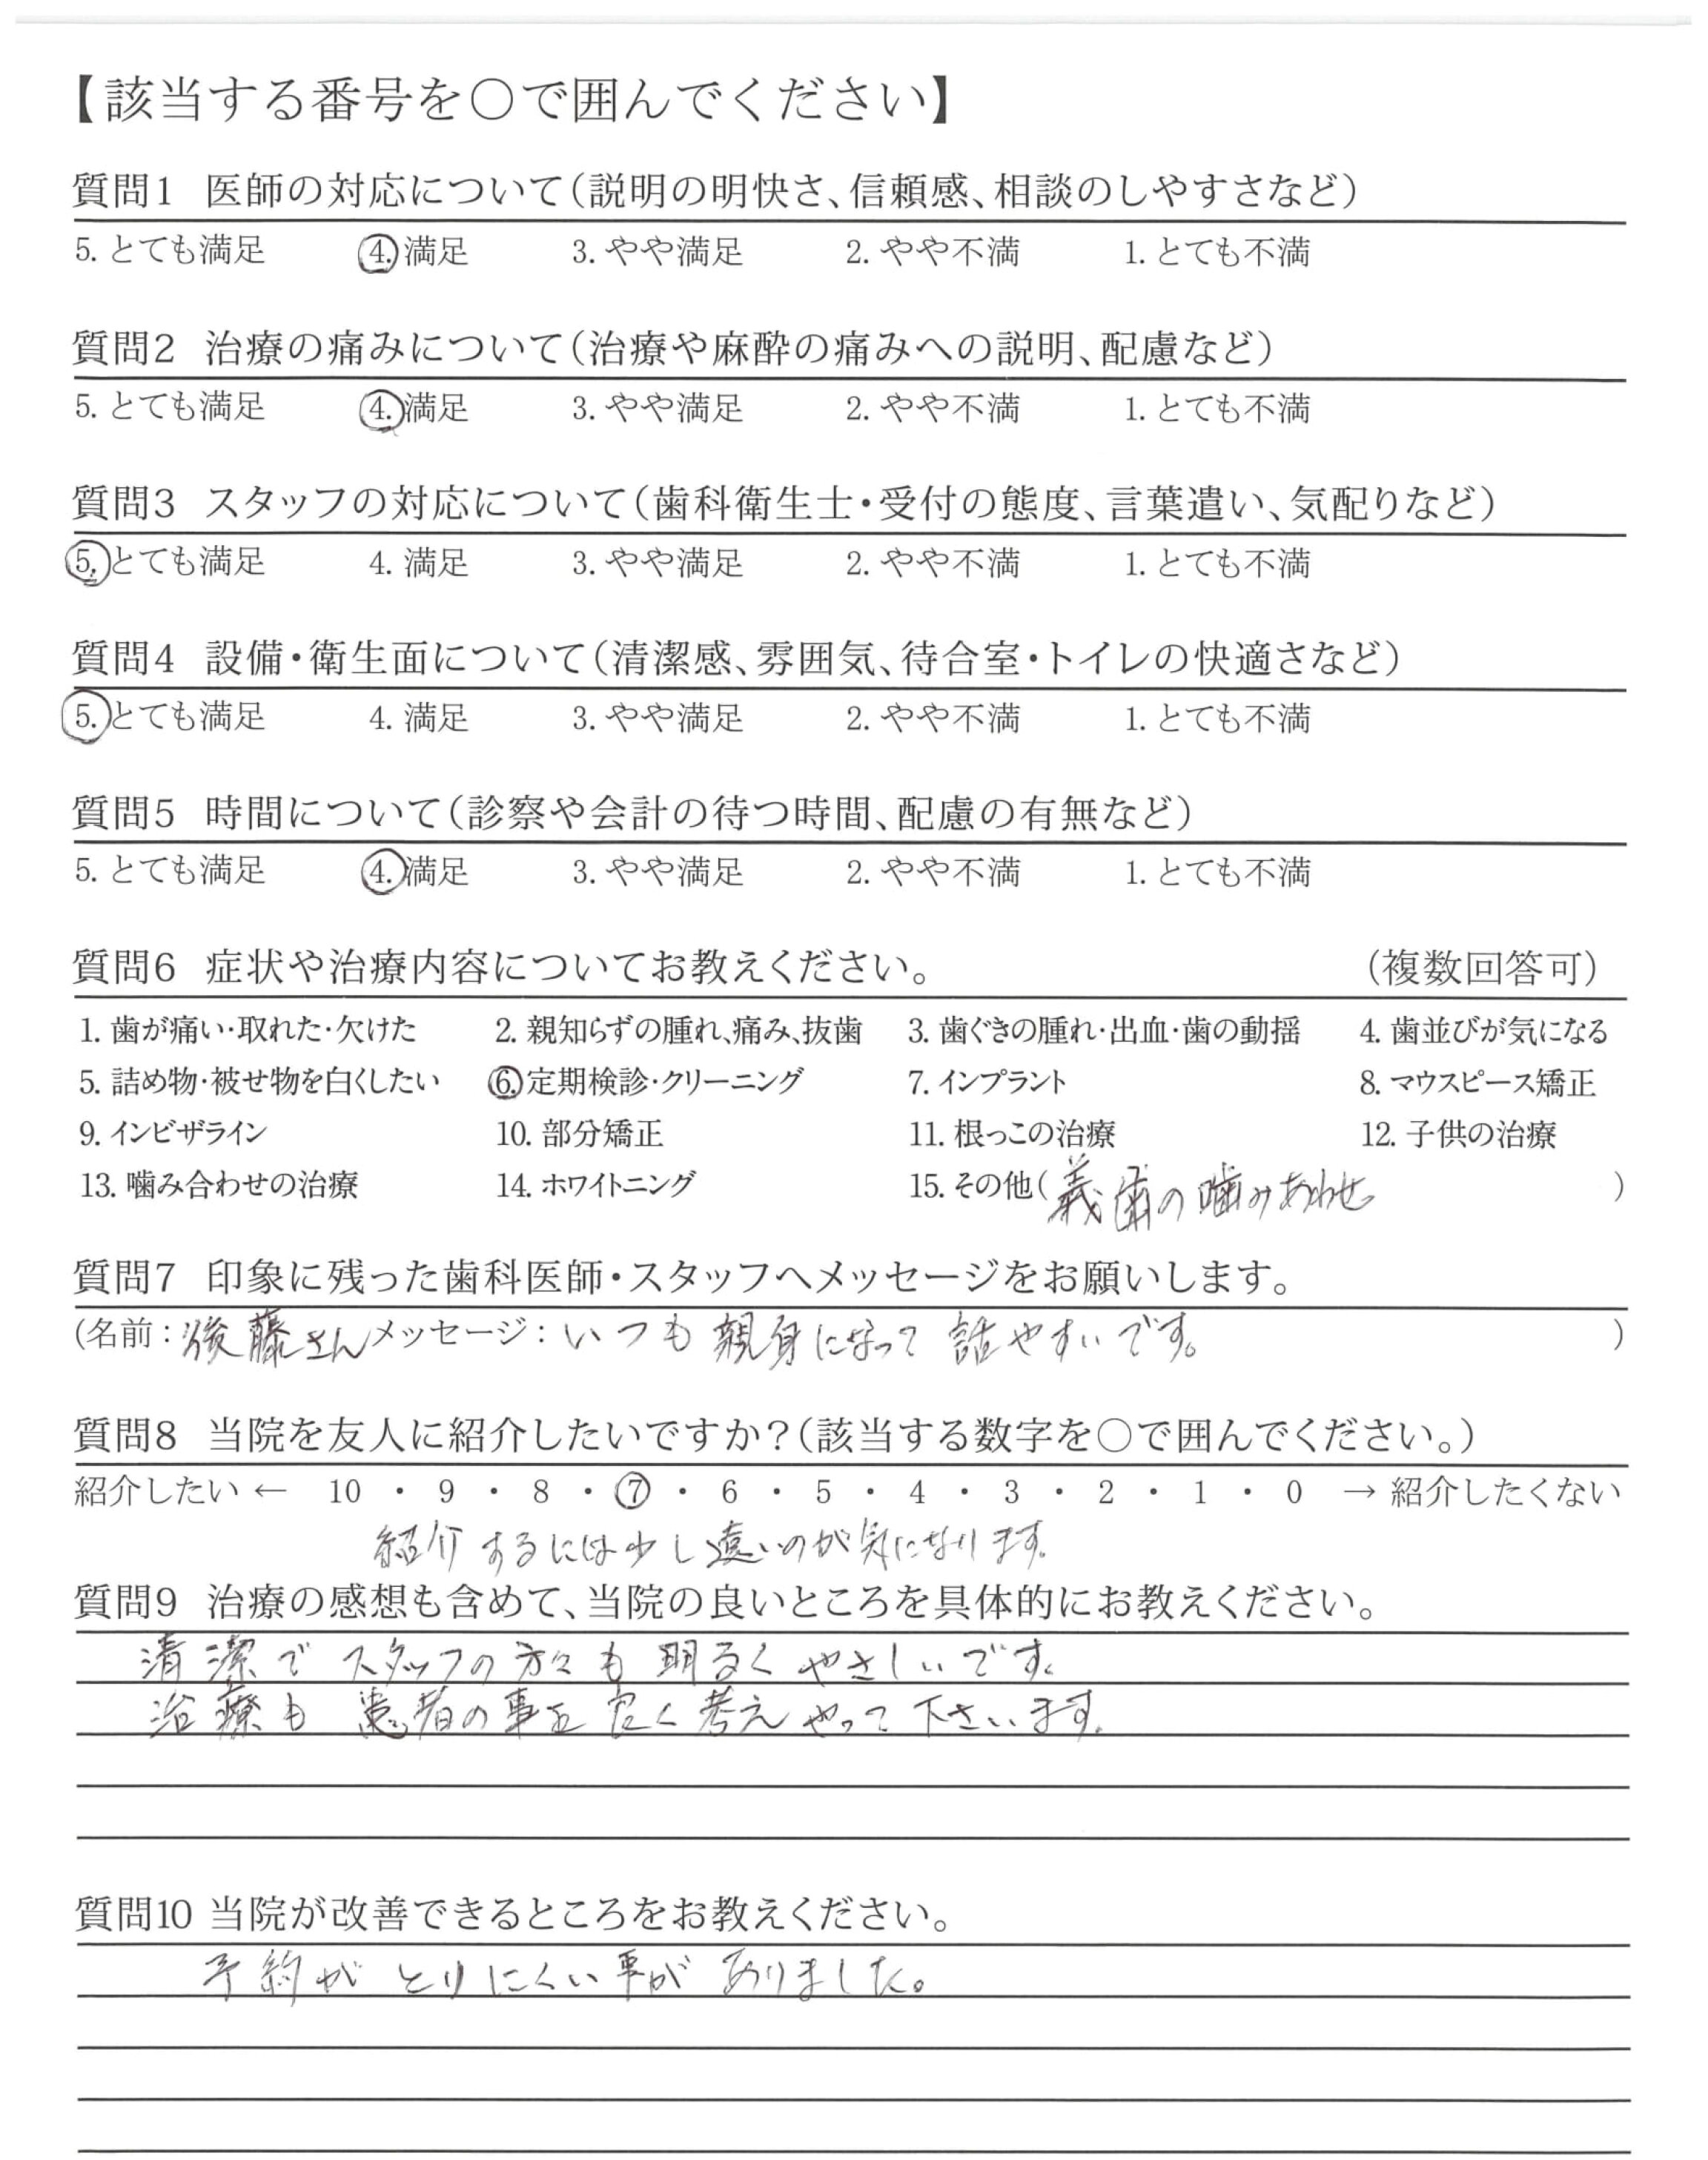 【該当する番号を○で囲んでください】
質問1 医師の対応について(説明の明快さ、信頼感、相談のしやすさなど)
5. とても満足 4. 満足 3. やや満足 2. やや不満 1. とても不満
質問2 治療の痛みについて(治療や麻酔の痛みへの説明、配慮など)
5. とても満足 4. 満足 3. やや満足 2. やや不満 1. とても不満
質問3 スタッフの対応について(歯科衛生士・受付の態度、言葉遣い、気配りなど)
5. とても満足 4. 満足 3. やや満足 2. やや不満 1. とても不満
質問4 設備・衛生面について(清潔感、雰囲気、待合室・トイレの快適さなど)
5. とても満足 4. 満足 3. やや満足 2. やや不満 1. とても不満
質問5 時間について(診察や会計の待つ時間、配慮の有無など)
5. とても満足 4. 満足 3. やや満足 2. やや不満 1. とても不満
質問6 症状や治療内容についてお教えください。 (複数回答可)
1. 歯が痛い・取れた・欠けた 2. 親知らずの腫れ、痛み、抜歯 3. 歯ぐきの腫れ・出血・歯の動揺 4. 歯並びが気になる
5. 詰め物・被せ物を白くしたい 6. 定期検診・クリーニング 7. インプラント 8. マウスピース矯正
9. インビザライン 10. 部分矯正 11. 根っこの治療 12. 子供の治療
13. 噛み合わせの治療 14. ホワイトニング 15. その他(義歯の噛みあわせ)
質問7 印象に残った歯科医師・スタッフへメッセージをお願いします。
(名前:後藤さん メッセージ:いつも親身になって話やすいです。)
質問8 当院を友人に紹介したいですか?(該当する数字を○で囲んでください。)
紹介したい ← 10 ・ 9 ・ 8 ・ 7 ・ 6 ・ 5 ・ 4 ・ 3 ・ 2 ・ 1 ・ 0 → 紹介したくない
紹介するには少し遠いのが気になります。
質問9 治療の感想も含めて、当院の良いところを具体的にお教えください。
清潔でスタッフの方々も明るくやさしいです。
治療も患者の事を良く考えやって下さいます。
質問10 当院が改善できるところをお教えください。
予約がとりにくい事がありました。